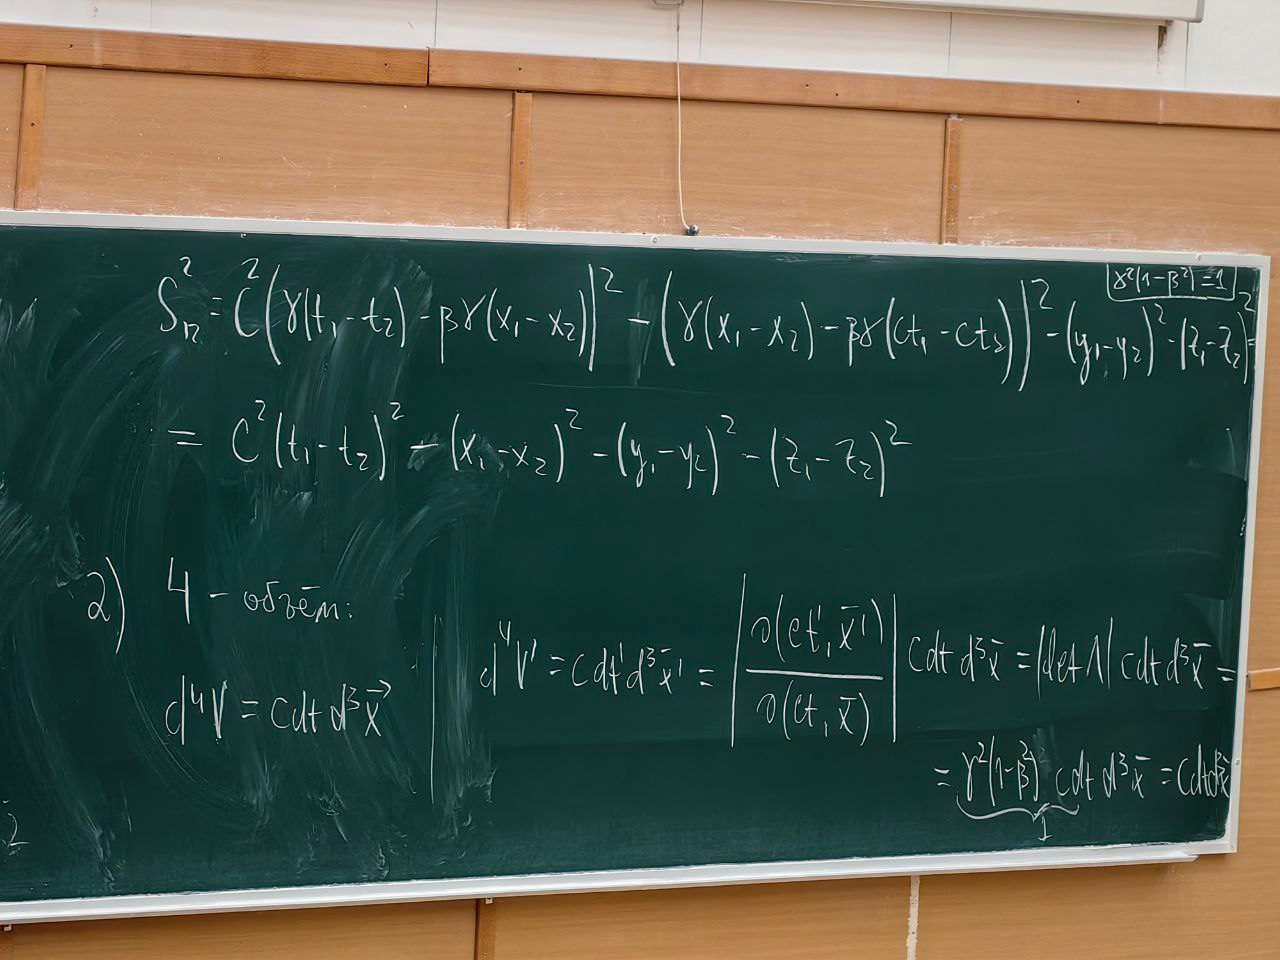 γ²(1-β²)=1
S₁₂² = C²(γ(t₁-t₂)-βγ(x₁-x₂))² - (γ(x₁-x₂)-βγ(ct₁-ct₂))² - (y₁-y₂)² - (z₁-z₂)² =
= C²(t₁-t₂)² - (x₁-x₂)² - (y₁-y₂)² - (z₁-z₂)²
2) 4-объём:
d⁴V = cdt d³x⃗ | d⁴V' = cdt' d³x̄' = |∂(ct', x̄')/∂(ct, x̄)| cdt d³x̄ = |det Λ| cdt d³x̄ =
= γ²(1-β²) cdt d³x̄ = cdt d³x̄
1